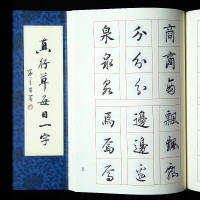 真行草每日一字
商 分 泉
商 分 泉
商 分 泉
飄 邊 焉
飄 邊 焉
飄 邊 焉